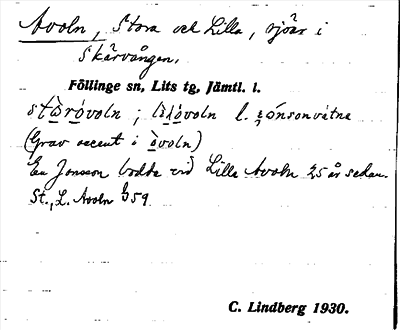 Avoln, Stora och Lilla, sjöar i
Skärvången.
Föllinge sn, Lits tg, Jämtl. l.
l.
(Grav accent i òvoln)
En Jonsson bodde vid Lilla Avoln 25 år sedan.
St., L. Avoln 59
C. Lindberg 1930.